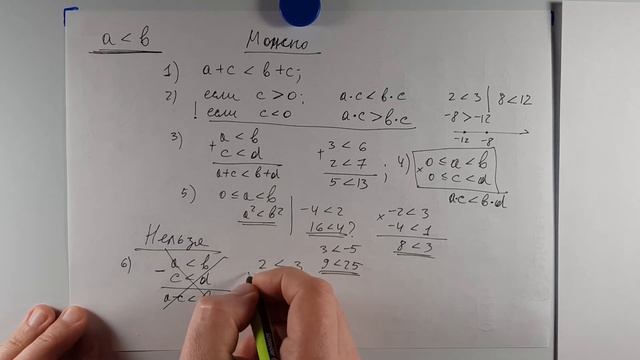 a < b Можно
1) a+c < b+c;
2) если c>0: a·c < b·c 2<3 | 8<12
! если c<0 a·c > b·c -8>-12
-12 -8
3) + a<b c<d a+c < b+d + 3<6 2<7 5<13 ;
4) × 0≤a<b 0≤c<d a·c < b·d
5) 0≤a<b a²<b² -4<2 16<4? × -2<3 -4<1 8<3
3<-5 9<25
Нельзя
6) - a<b c<d 2<3